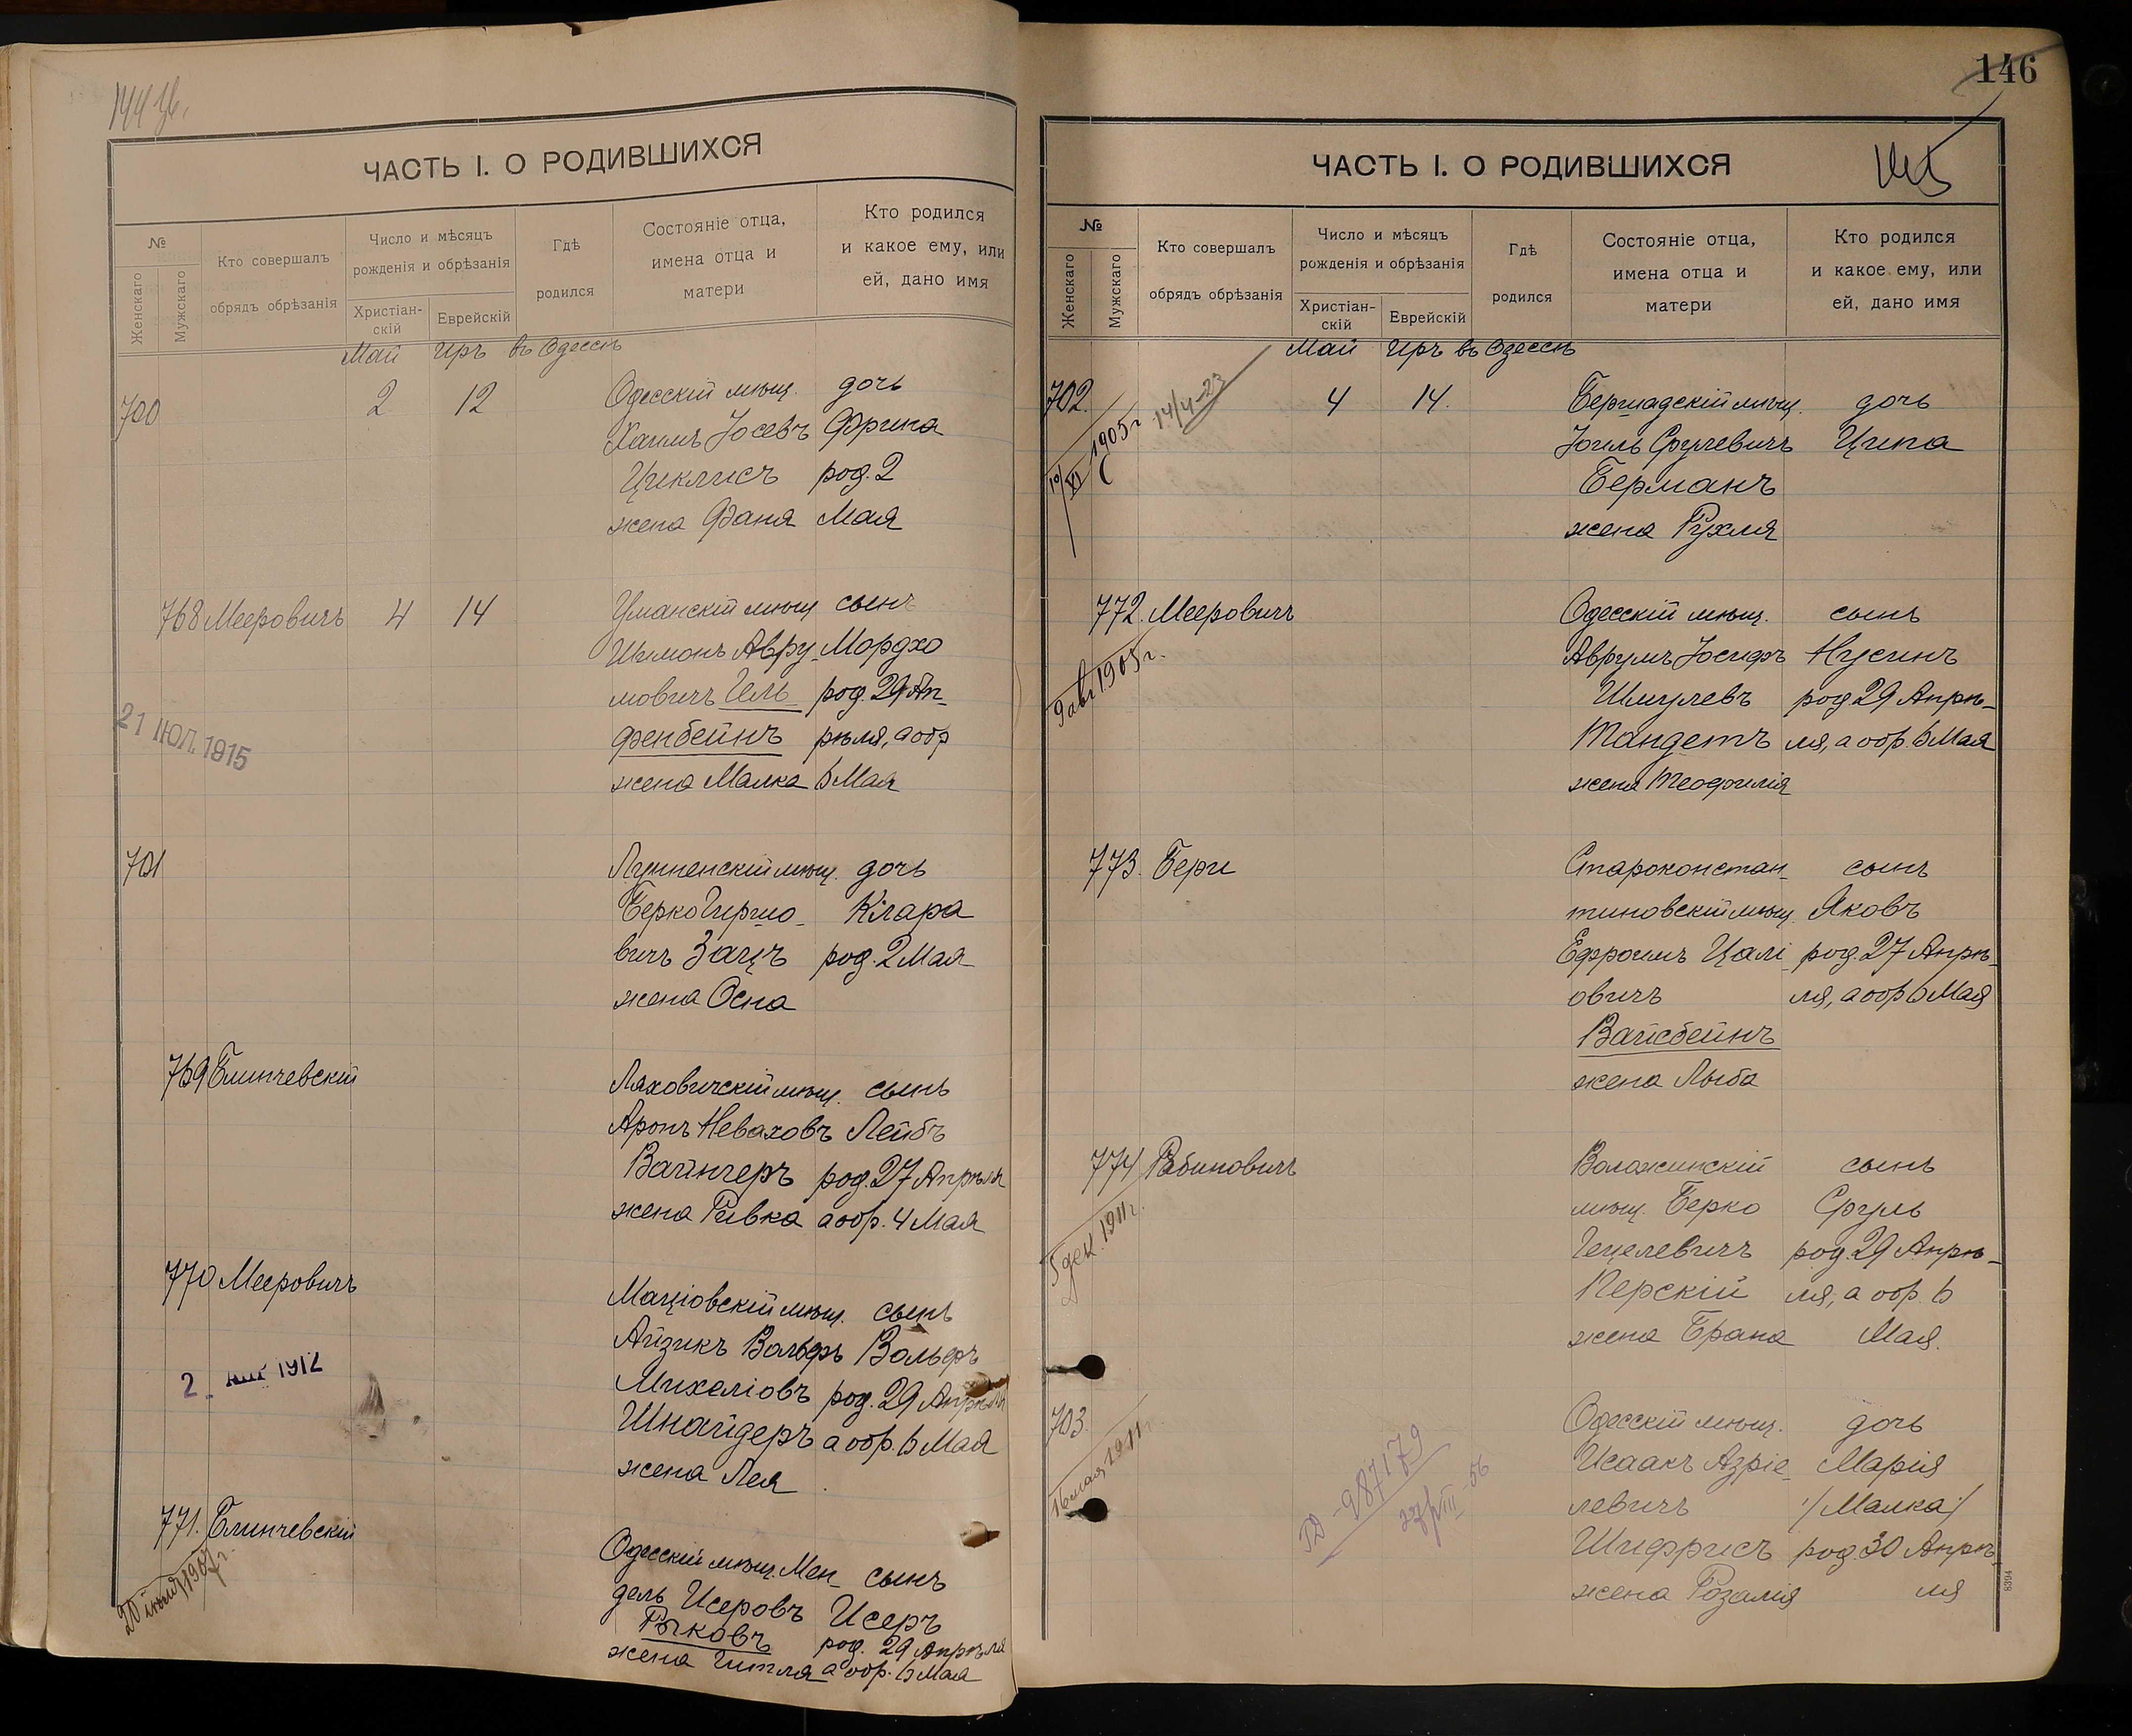 144 об.
ЧАСТЬ I. О РОДИВШИХСЯ
№
Женскаго
Мужскаго
Кто совершалъ
обрядъ обрѣзанія
Число и мѣсяцъ
рожденія и обрѣзанія
Христіан-
скій
Еврейскій
Гдѣ
родился
Состояніе отца,
имена отца и
матери
Кто родился
и какое ему, или
ей, дано имя
Май Іръ въ Одессѣ
700 2 12 Одесскій мѣщ. дочь
Хаимъ Іосевъ Фрина
Циклисъ род. 2
жена Фаня Мая
768 Мееровичъ 4 14 Уманскій мѣщ сынъ
Шимонъ Авру- Мордхо
мовичъ Гель- род. 29 Ап-
фенбейнъ рѣля, а обр
жена Малка 6 Мая
21 ІЮЛ. 1915
701 мѣщ. дочь
Берко Гершо- Клара
вичъ Зацъ род. 2 Мая
жена Осна
769 Блинчевскій Ляховичскій мѣщ. сынъ
Аронъ Неваховъ Лейбъ
Вайнгеръ род. 27 Апрѣля
жена Ривка а обр. 4 Мая
770 Мееровичъ Маціовскій мѣщ. сынъ
Айзикъ Вольфъ Вольфъ
Михеліовъ род. 29 Апрѣля
Шнайдеръ а обр. 6 Мая
жена Лея
2 АПР 1912
771. Блинчевскій Одесскій мѣщ. Мен- сынъ
дель Исеровъ Исеръ
Рыковъ род. 29 Апрѣля
жена Гитля а обр. 6 Мая
20 іюня 1907 г.
146
ЧАСТЬ I. О РОДИВШИХСЯ
№
Женскаго
Мужскаго
Кто совершалъ
обрядъ обрѣзанія
Число и мѣсяцъ
рожденія и обрѣзанія
Христіан-
скій
Еврейскій
Гдѣ
родился
Состояніе отца,
имена отца и
матери
Кто родился
и какое ему, или
ей, дано имя
Май Іръ въ Одессѣ
702. 4 14. Бершадскій мѣщ. дочь
Іоиль Срулевичъ Ципа
Берманъ
жена Рухля
10/XI 1905 г
14/4-23
772. Мееровичъ Одесскій мѣщ. сынъ
Аврумъ Іосифъ Нусинъ
Шмулевъ род. 29 Апрѣ-
Тандетъ ля, а обр. 6 Мая
жена Теофилія
9 авг 1905 г.
773. Бери Староконстан- сынъ
тиновскій мѣщ. Яковъ
Ефроимъ Цалі- род. 27 Апрѣ-
овичъ ля, а обр 6 Мая
Вайсбейнъ
жена Лыба
774 Рабиновичъ Воложинскій сынъ
мѣщ. Берко Сруль
Гецелевичъ род. 29 Апрѣ-
Перскій ля, а обр. 6
жена Брана Мая.
5 дек. 1911 г.
703. Одесскій мѣщ. дочь
Исаакъ Азріе- Марія
левичъ /Малка/
Шифрисъ род. 30 Апрѣ-
жена Розалія ля
16 мая 1911 г.
-987179
8394